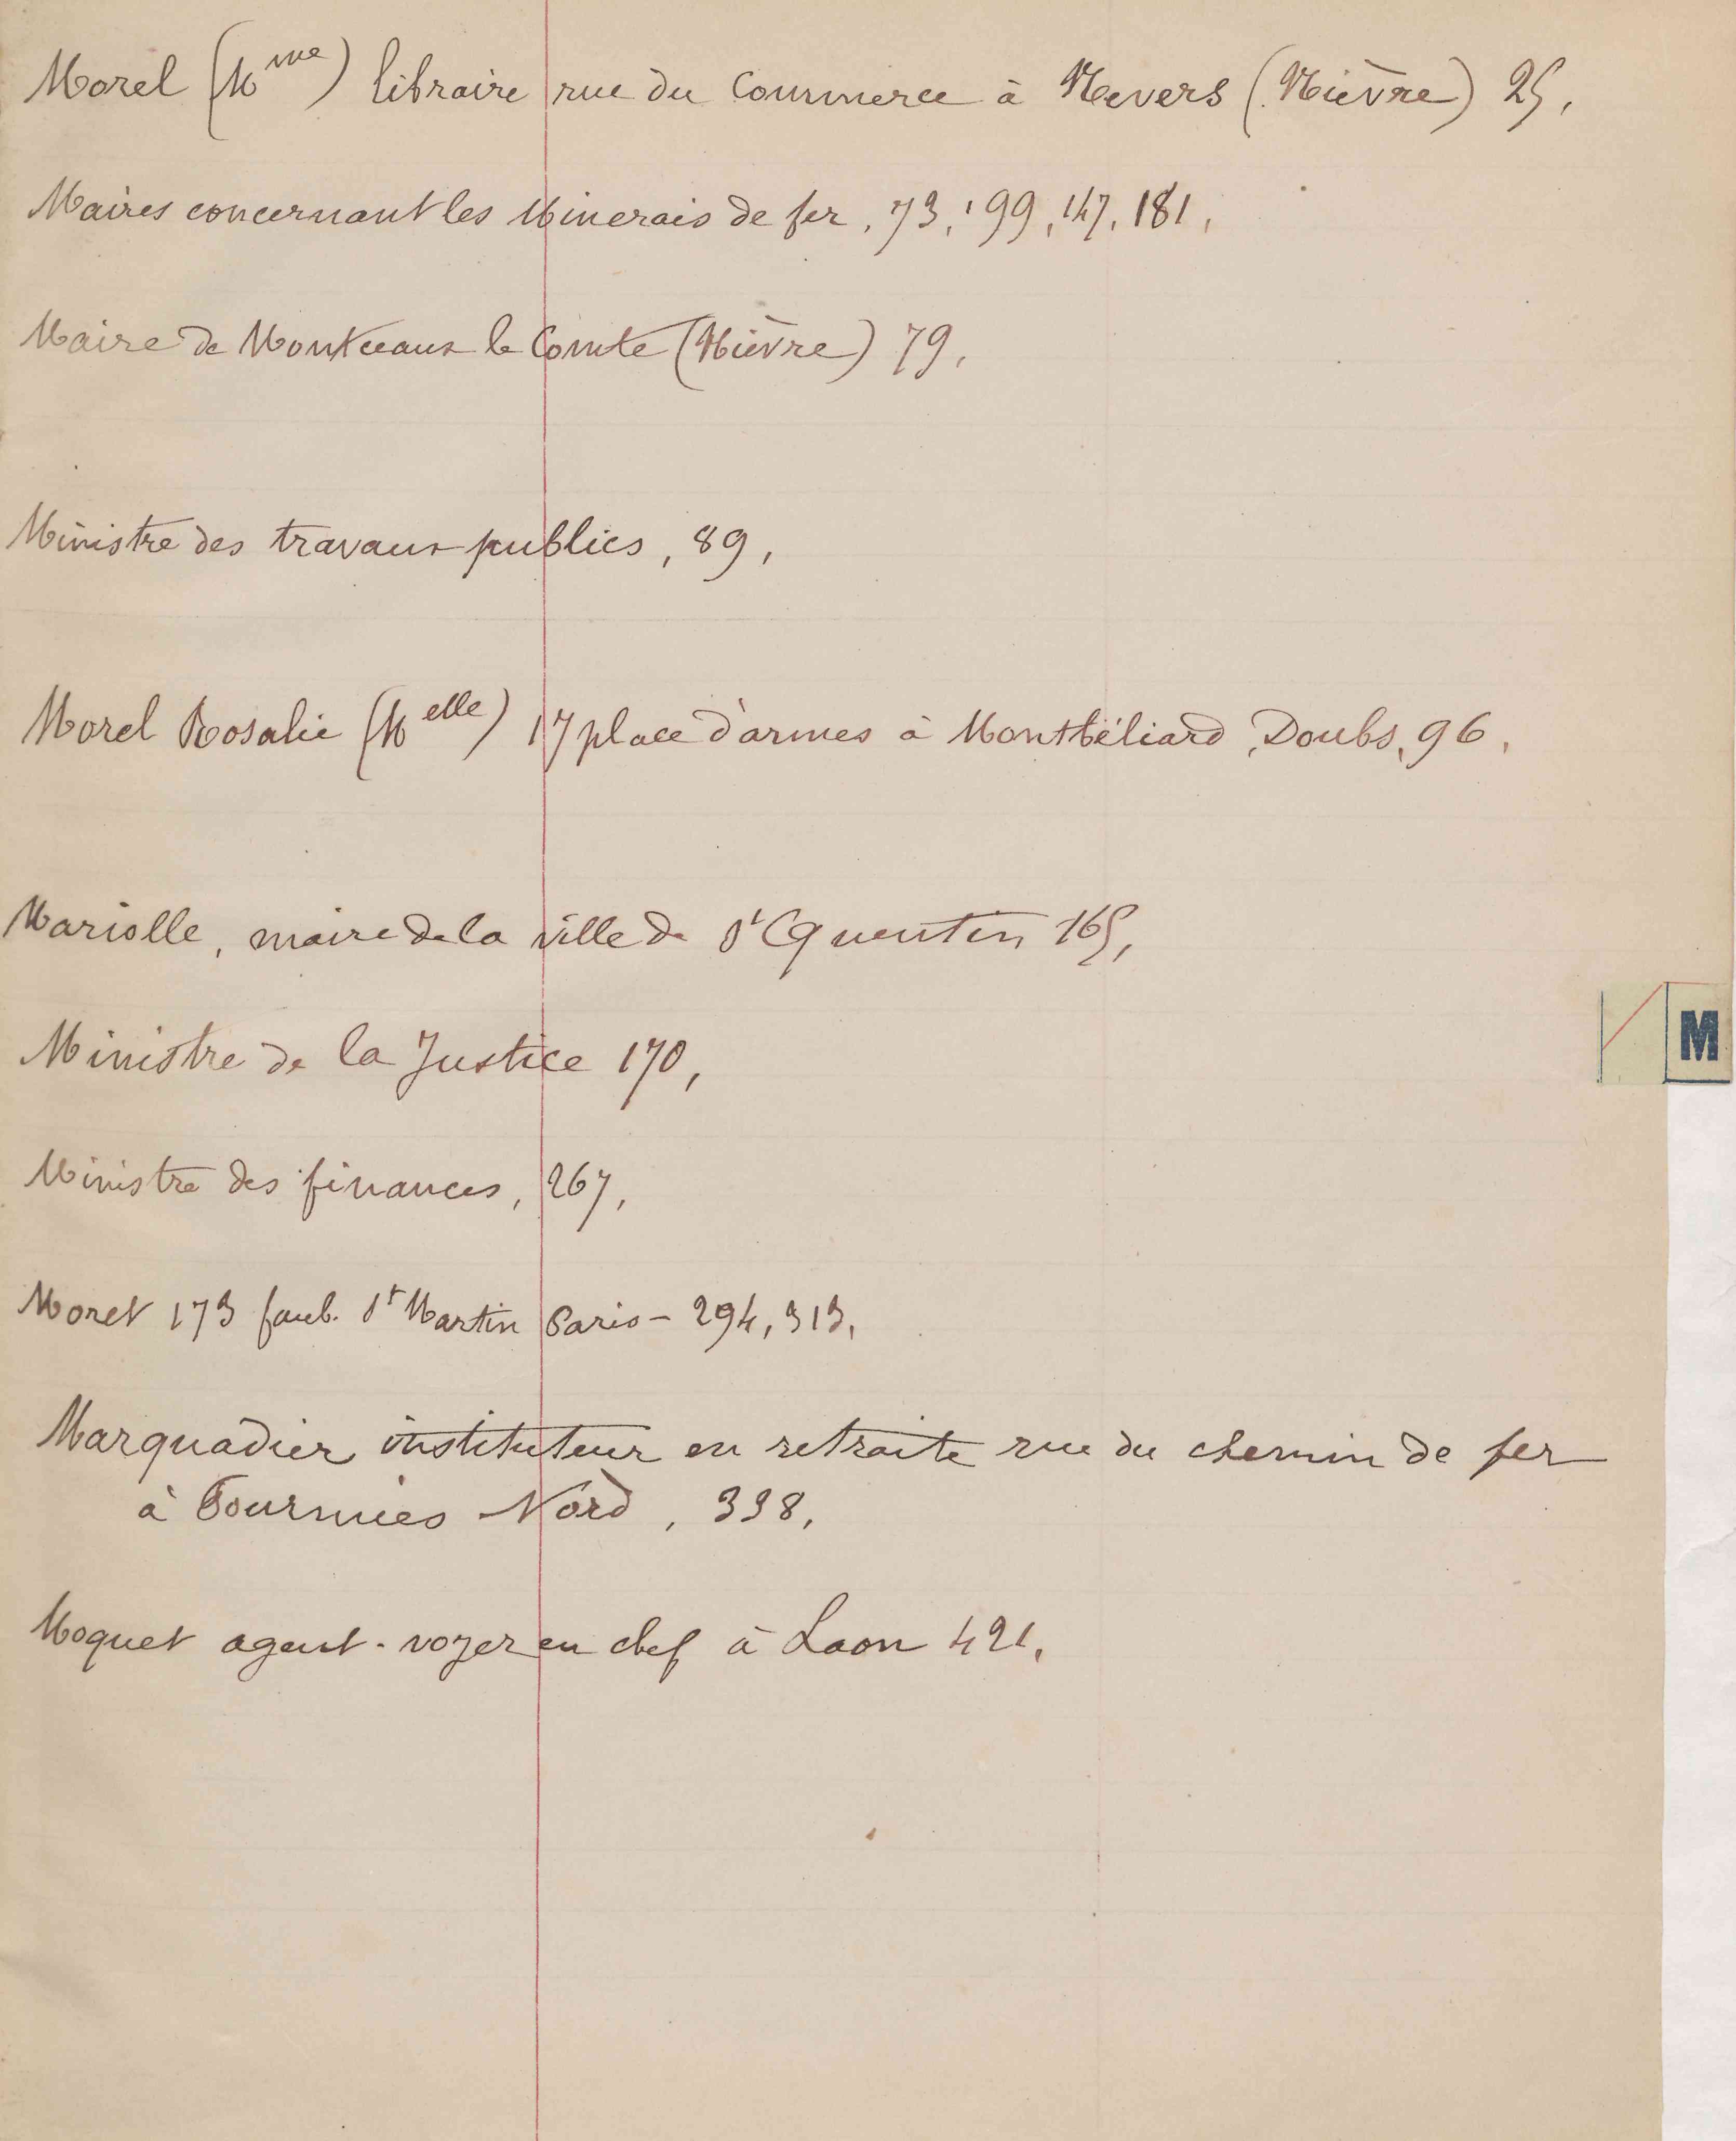 Morel (Mme) libraire rue du Commerce à Nevers (Nièvre) 25,
Maires concernant les Minerais de fer, 73, 99, 147, 181,
Maire de Montceaux le Comte (Nièvre) 79,
Ministre des travaux publics, 89,
Morel Rosalie (Melle) 17 place d'armes à Montbéliard, Doubs, 96,
Mariolle, maire de la ville de St Quentin 165,
M
Ministre de la Justice 170,
Ministre des finances, 267,
Moret 173 faub. St Martin Paris - 294, 313,
Marquadier instituteur en retraite rue du chemin de fer
à Fourmies Nord, 338,
Moquet agent-voyer en chef à Laon 421,